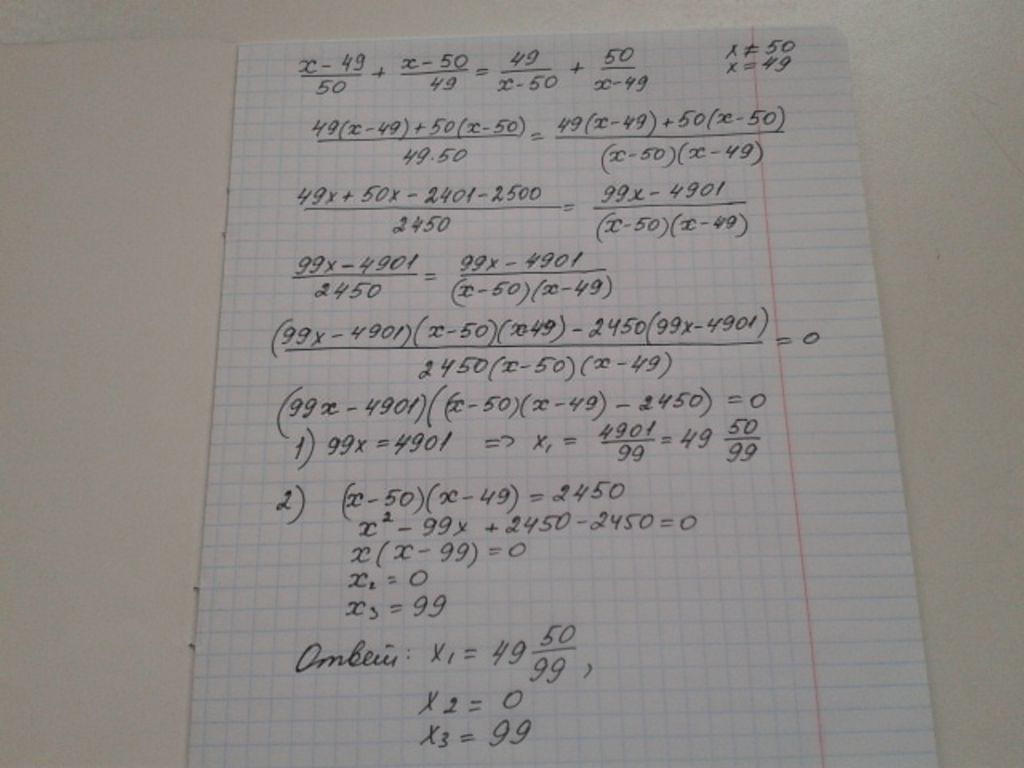 (x-49)/50 + (x-50)/49 = 49/(x-50) + 50/(x-49)
x ≠ 50
x = 49
(49(x-49)+50(x-50))/(49·50) = (49(x-49)+50(x-50))/((x-50)(x-49))
(49x+50x-2401-2500)/2450 = (99x-4901)/((x-50)(x-49))
(99x-4901)/2450 = (99x-4901)/((x-50)(x-49))
((99x-4901)(x-50)(x-49)-2450(99x-4901))/(2450(x-50)(x-49)) = 0
(99x-4901)((x-50)(x-49)-2450)=0
1) 99x=4901 => x₁ = 4901/99 = 49 50/99
2) (x-50)(x-49)=2450
x²-99x+2450-2450=0
x(x-99)=0
x₂=0
x₃=99
Ответ: x₁ = 49 50/99,
x₂ = 0
x₃ = 99